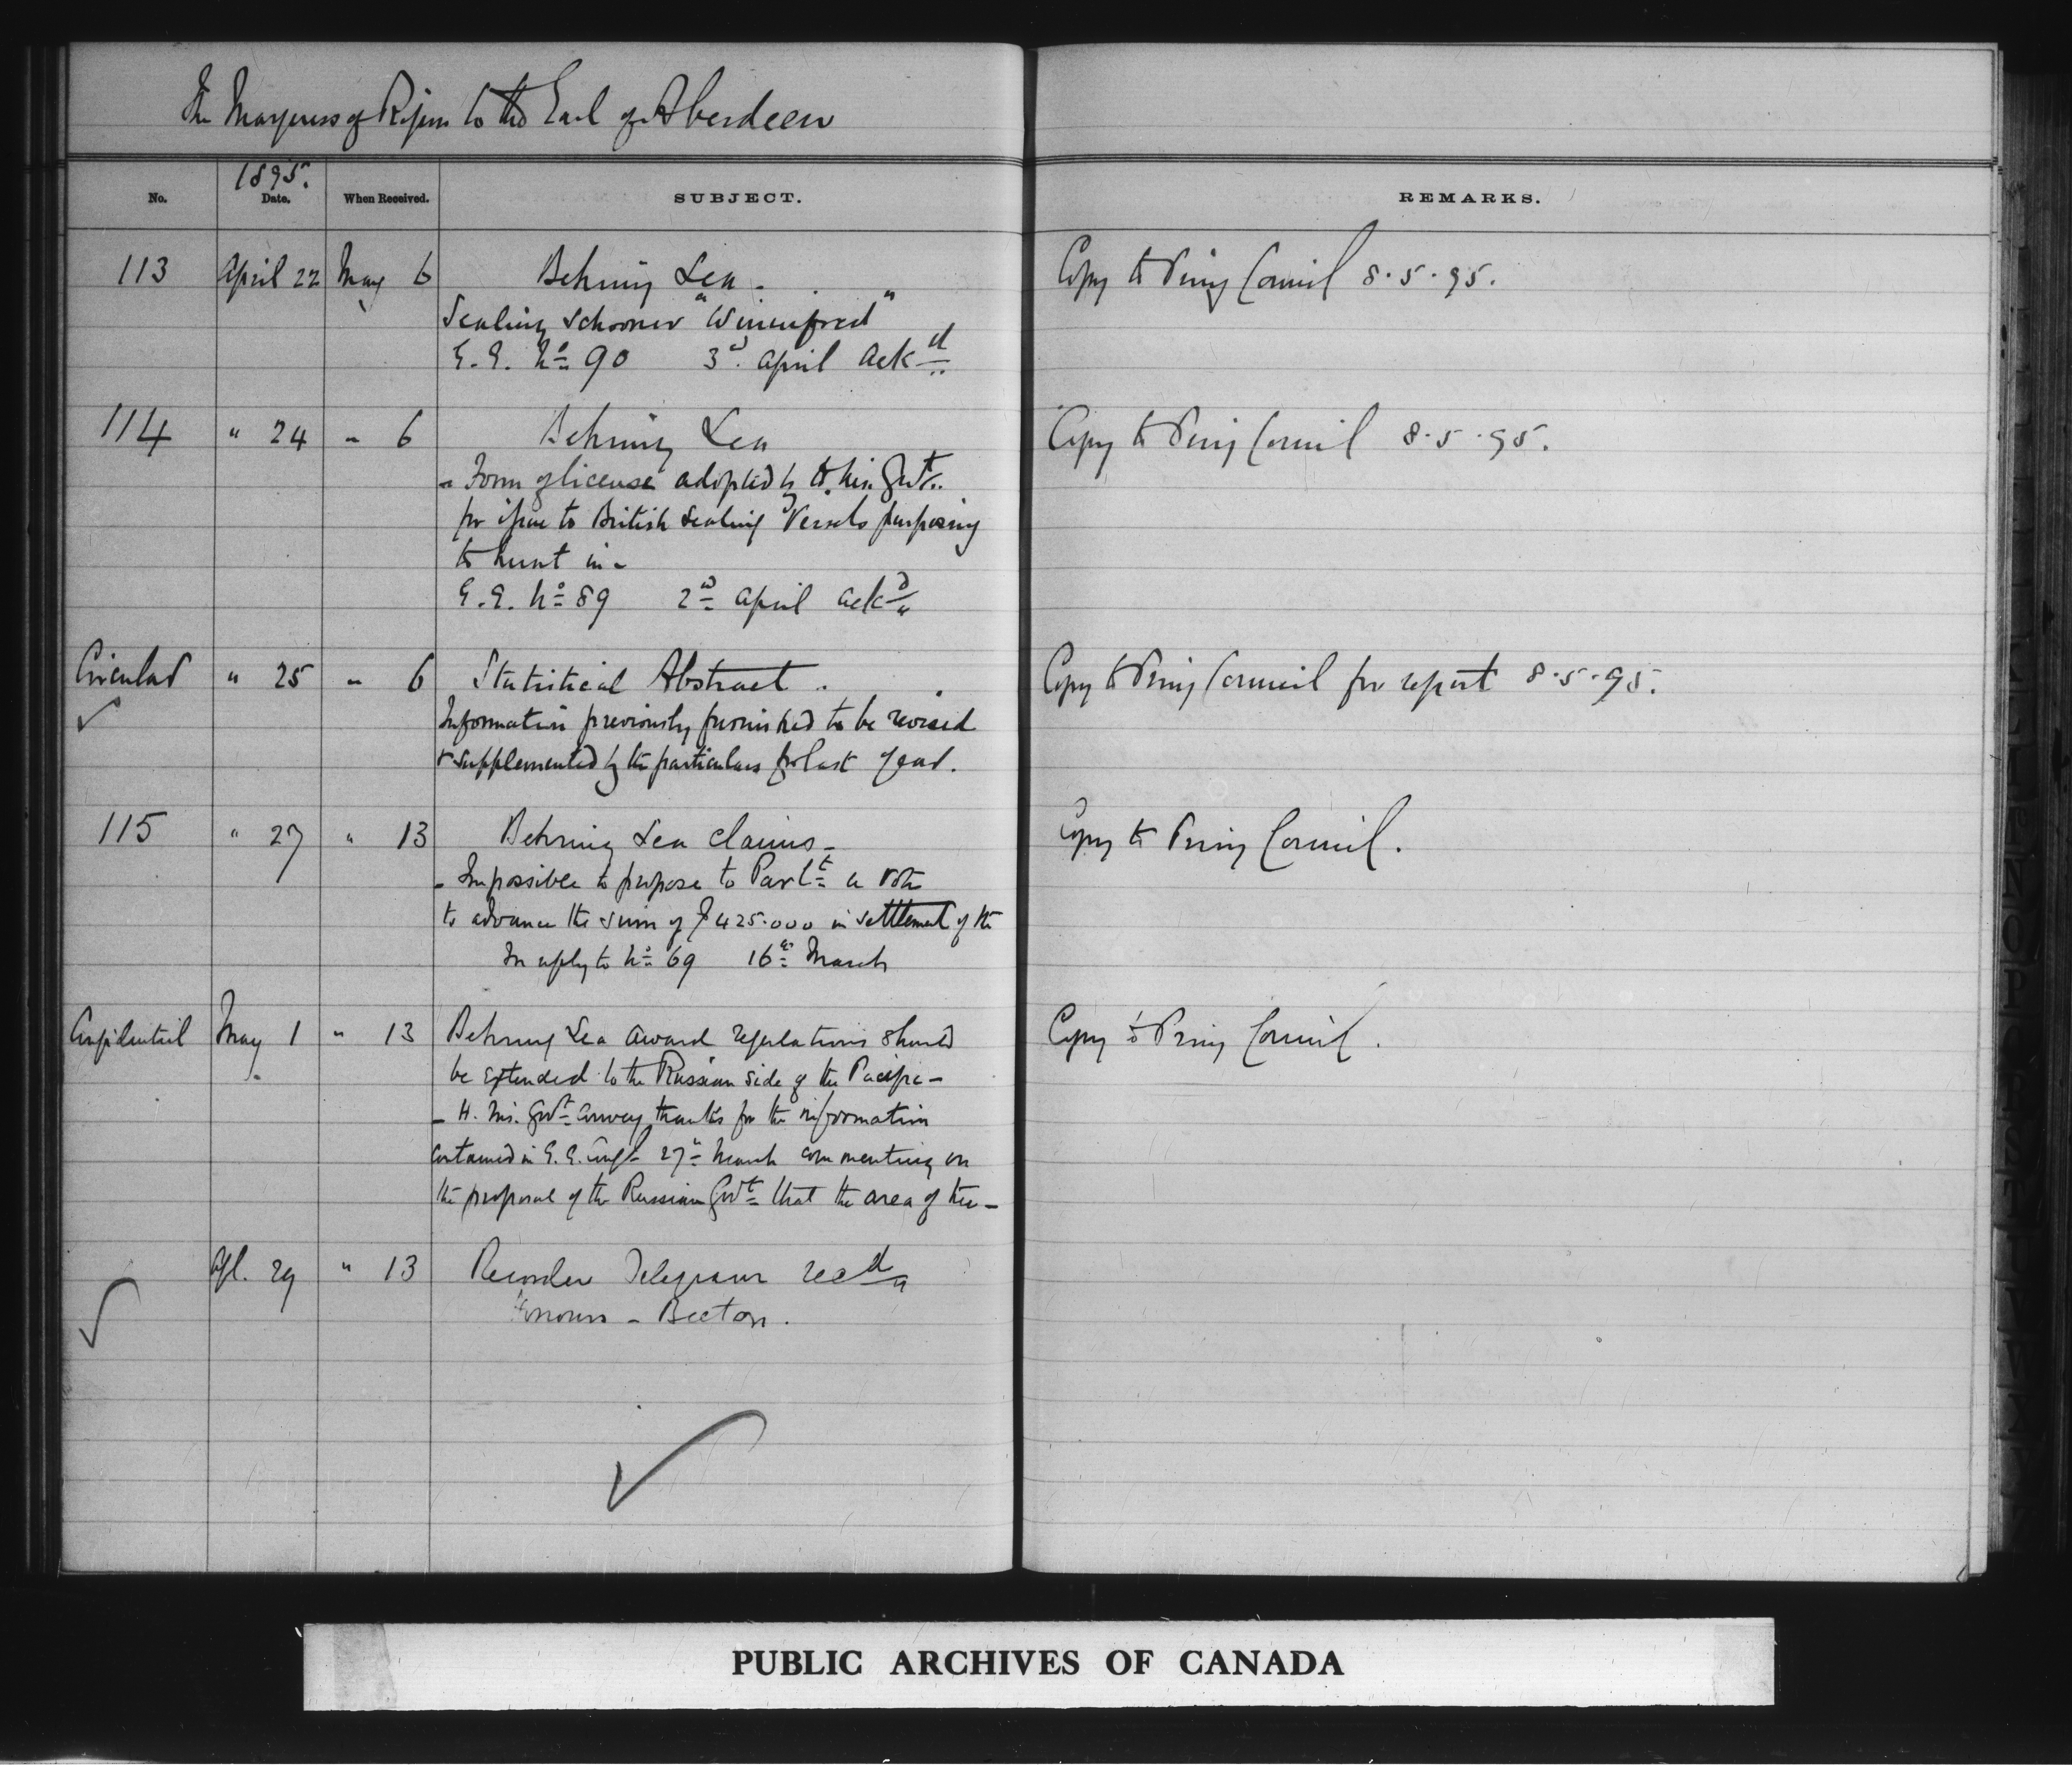 The Marquess of Ripon to the Earl of Aberdeen
1895.
No. Date. When Received. SUBJECT. REMARKS.
113 April 22 May 6 Behring Sea - Copy to Privy Council 8.5.95.
Sealing Schooner "Winnifred"
G.G. No 90 3d. April ackd
114 " 24 " 6 Behring Sea Copy to Privy Council 8.5.95.
- Form of license adopted by H. M. Govt.
for issue to British Sealing Vessels purposing
to hunt in -
G.G. No 89 2d April ackd
Circular " 25 " 6 Statistical Abstract .. Copy to Privy Council for report 8.5.95.
Information previously furnished to be revised
& supplemented by the particulars for last year.
115 " 27 " 13 Behring Sea claims - Copy to Privy Council.
- Impossible to propose to Parlt a vote
to advance the sum of $425.000 in settlement of the
In reply to No 69 16th March
Confidential May 1 " 13 Behring Sea award regulations should Copy to Privy Council.
be extended to the Russian side of the Pacific -
- H. M. Govt convey thanks for the information
contained in G.G. Conf 27th March commenting on
the proposal of the Russian Govt that the area of the -
Apl. 29 " 13 Recorder Telegram recd
Honours - Beeton.
PUBLIC ARCHIVES OF CANADA